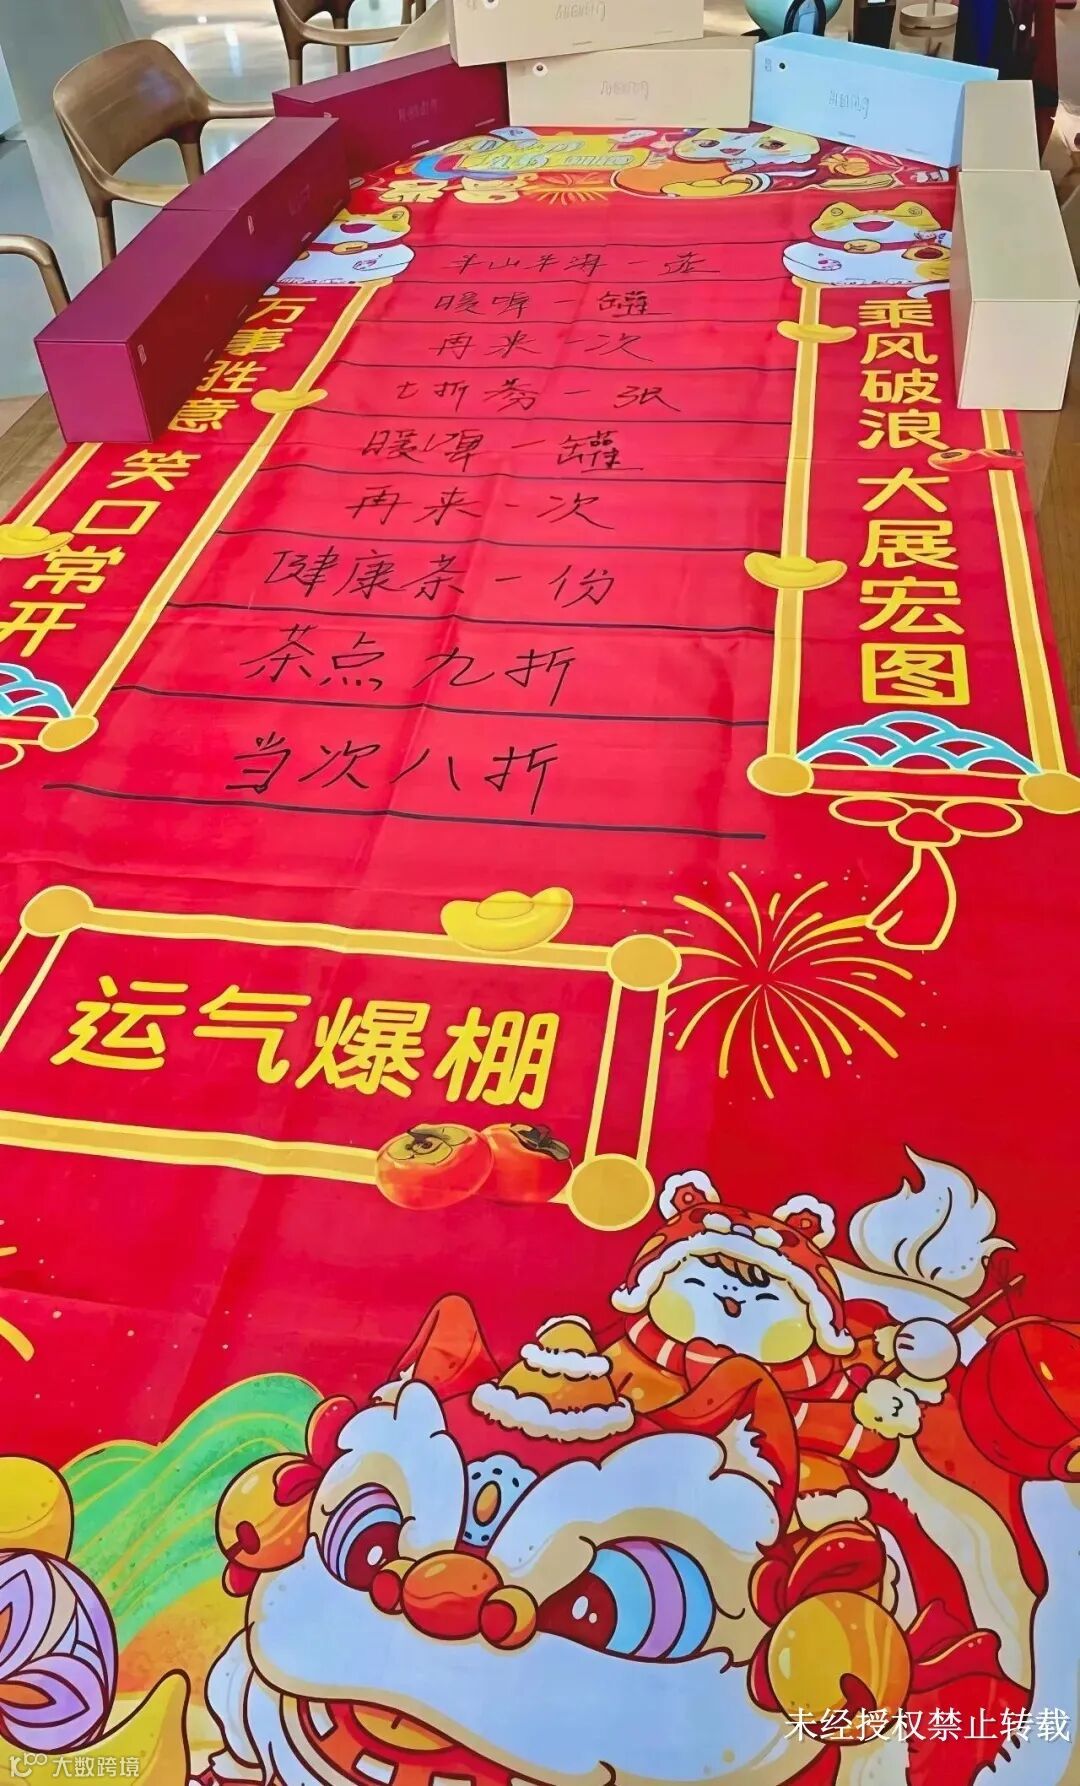 半山半海一壶
暖啤一罐
再来一次
七折券一张
暖啤一罐
再来一次
健康茶一份
茶点九折
当次八折
万事胜意 笑口常开
乘风破浪 大展宏图
运气爆棚
未经授权禁止转载
大数跨境